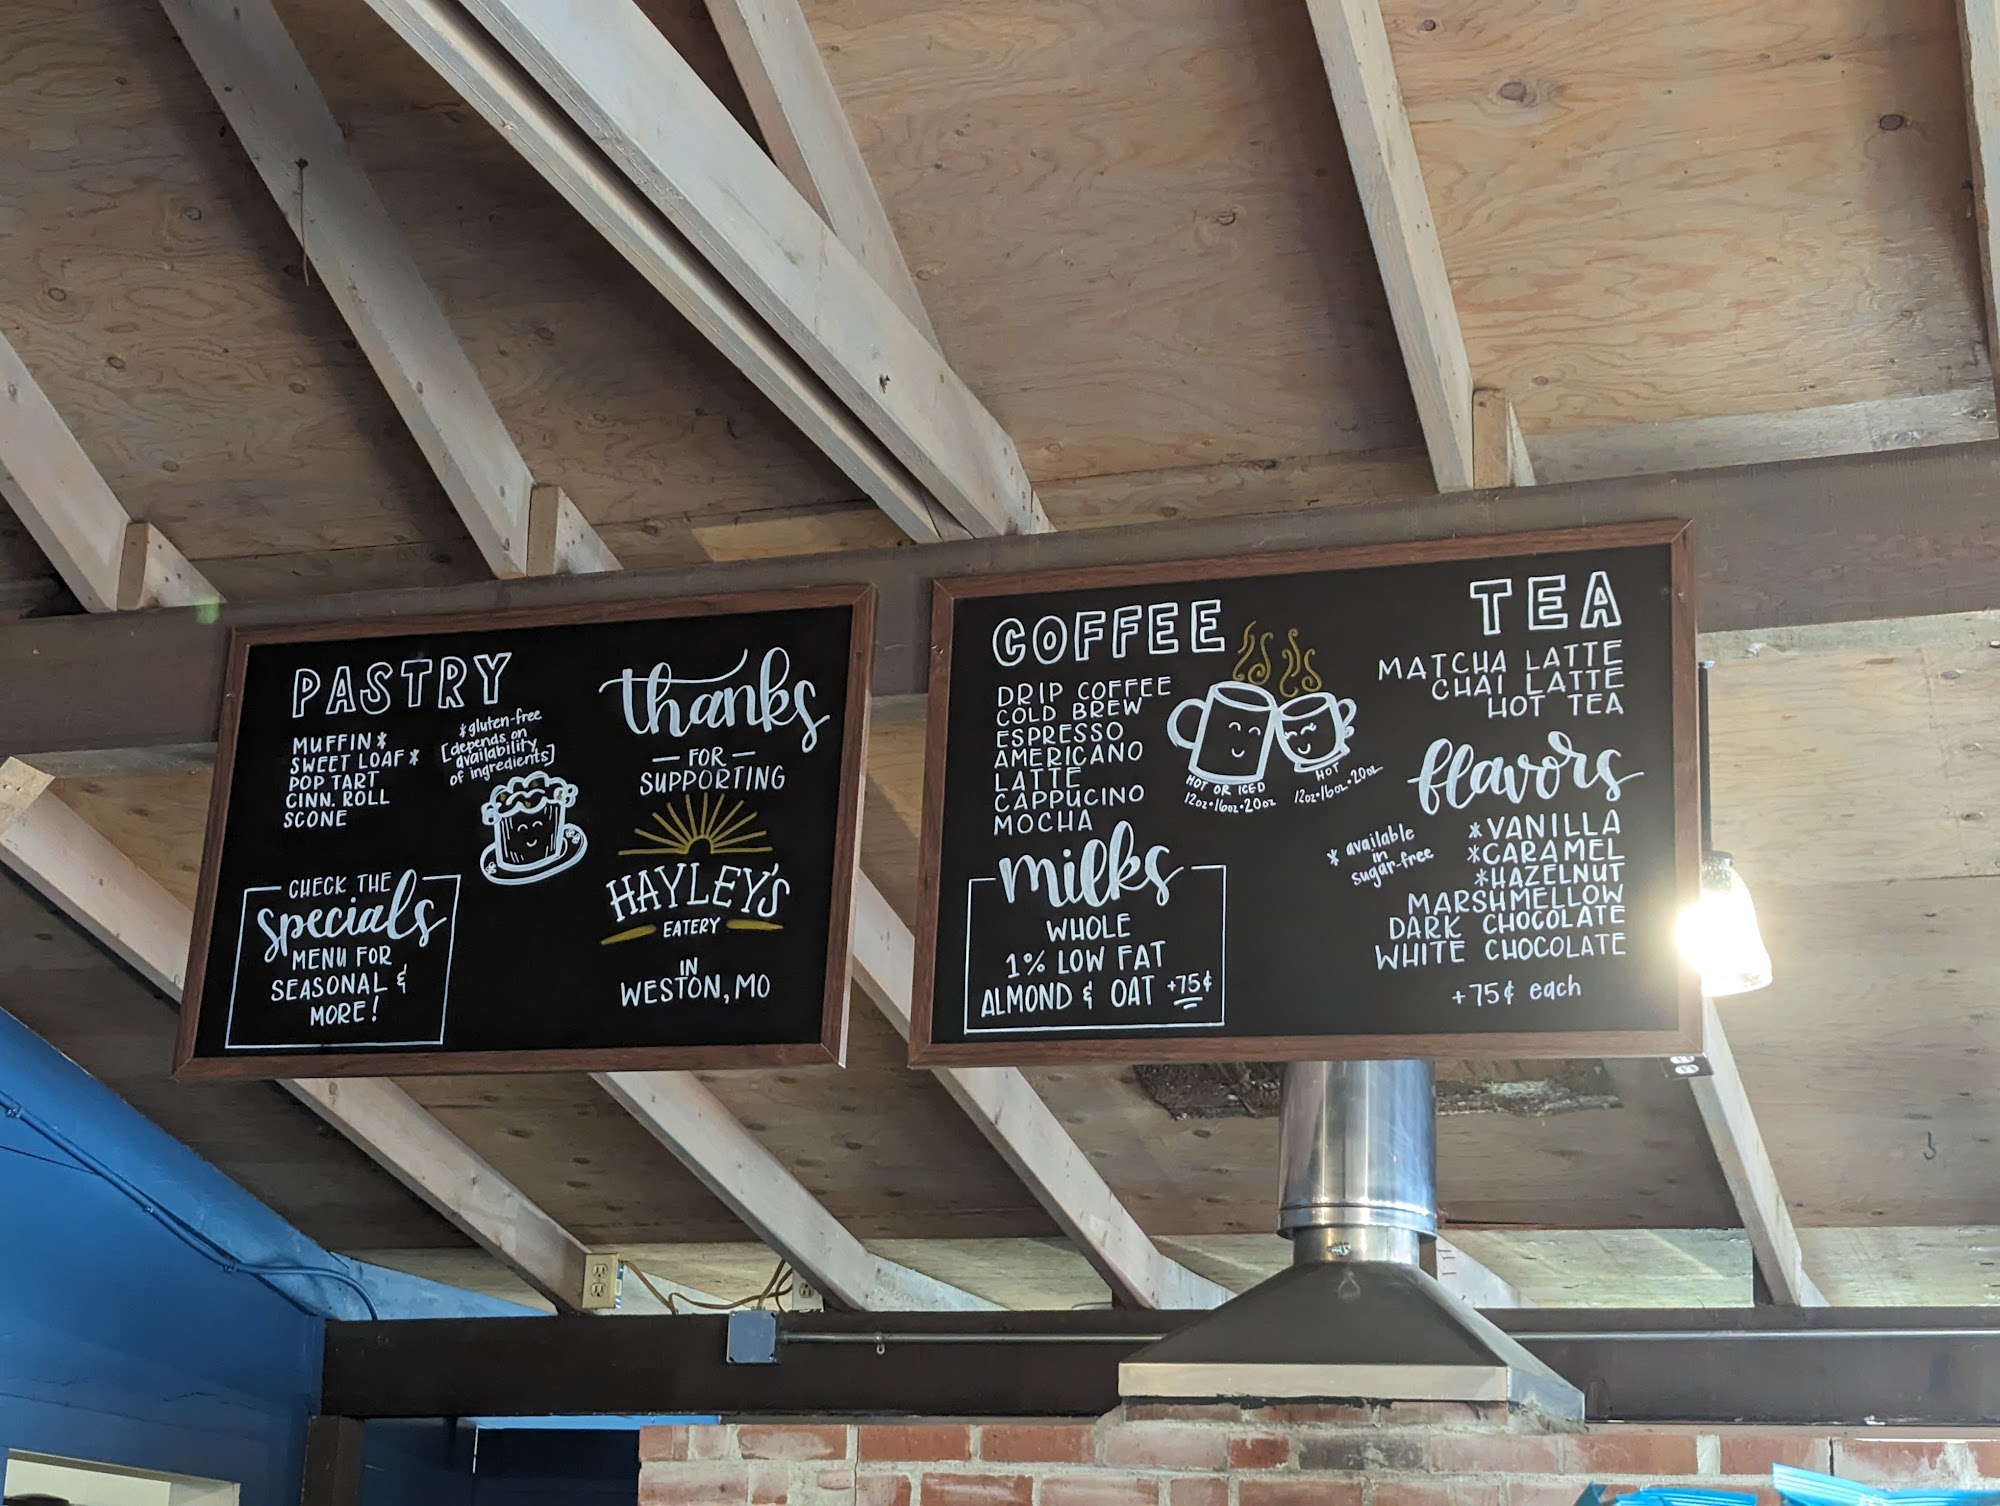 PASTRY
MUFFIN*
SWEET LOAF*
POP TART
CINN. ROLL
SCONE
*gluten-free
[depends on
availability
of ingredients]
CHECK THE
specials
MENU FOR
SEASONAL &
MORE!
thanks
— FOR —
SUPPORTING
HAYLEY'S
EATERY
IN
WESTON, MO
COFFEE
DRIP COFFEE
COLD BREW
ESPRESSO
AMERICANO
LATTE
CAPPUCINO
MOCHA
HOT OR ICED
12oz•16oz•20oz
HOT
12oz•16oz•20oz
milks
WHOLE
1% LOW FAT
ALMOND & OAT +75¢
TEA
MATCHA LATTE
CHAI LATTE
HOT TEA
flavors
* available
in
sugar-free
*VANILLA
*CARAMEL
*HAZELNUT
MARSHMELLOW
DARK CHOCOLATE
WHITE CHOCOLATE
+75¢ each